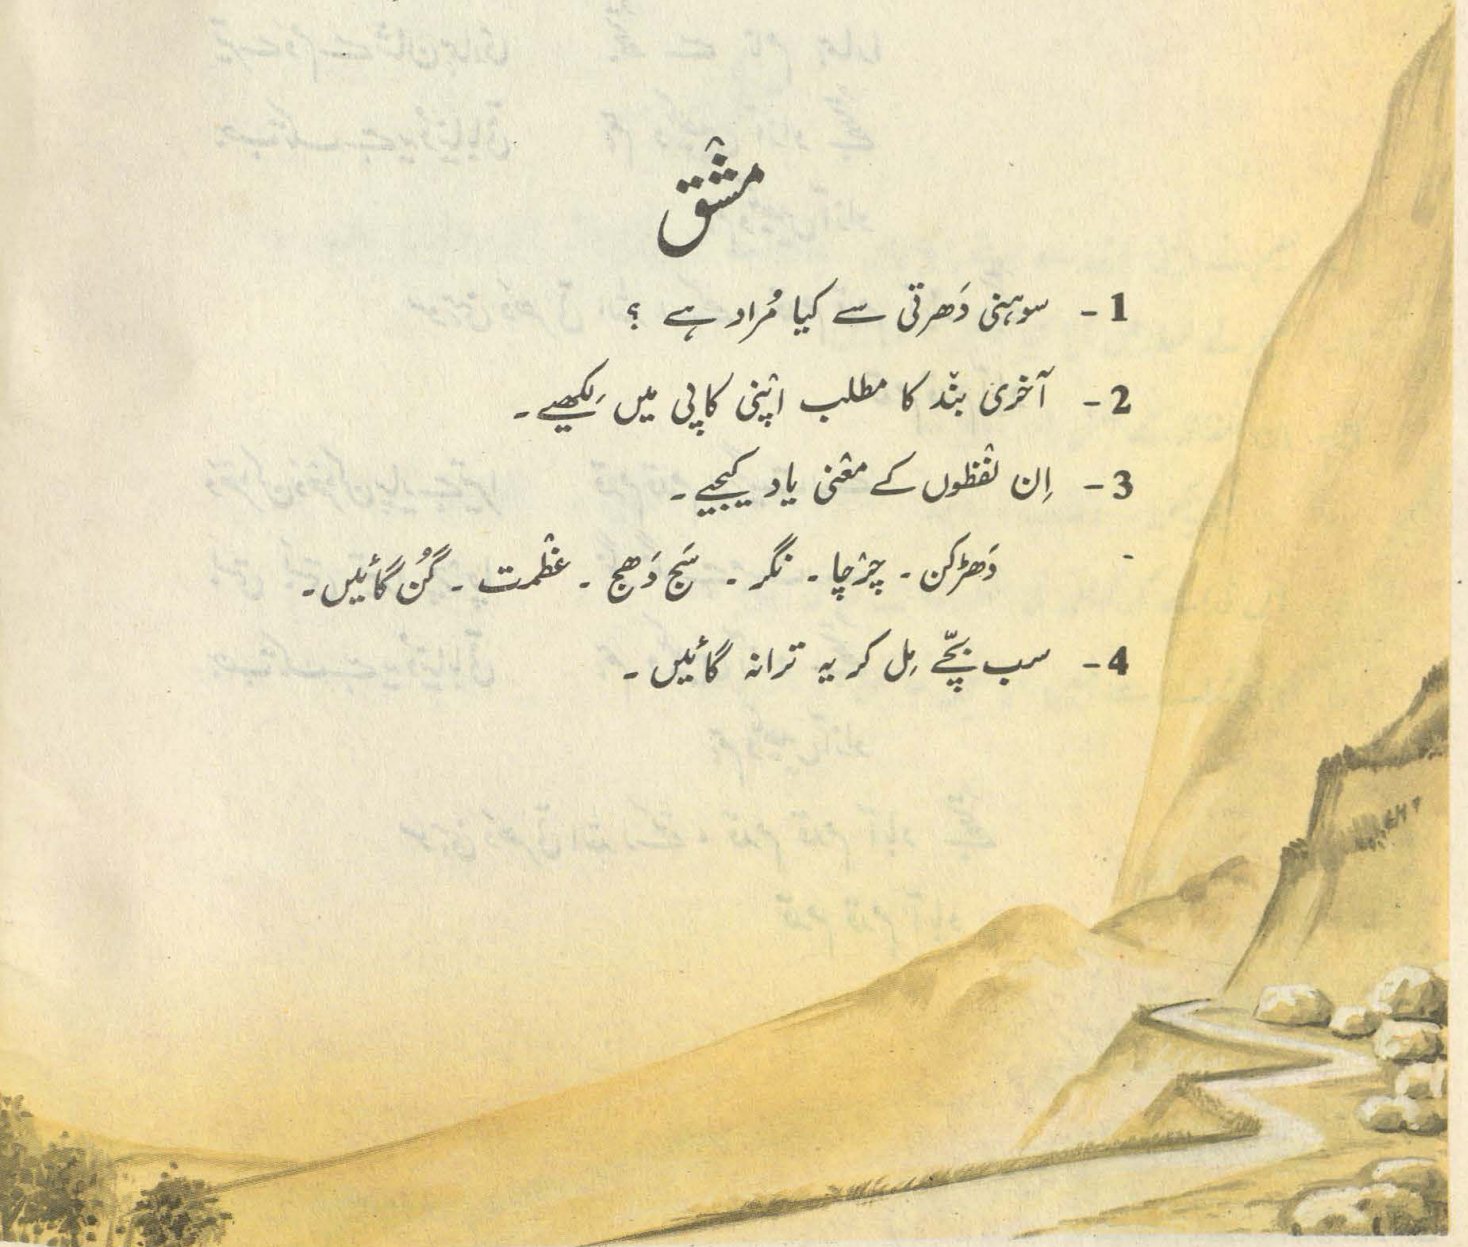 مشْق
1- سوہنی دَھرتی سے کیا مُراد ہے ؟
2- آخری بنْد کا مطلب اپْنی کاپی میں لِکھیے۔
3- اِن لفْظوں کے معْنی یاد کیجیے۔
دَھڑکن ۔ چرْچا ۔ نگر ۔ سَج دَھج ۔ عظْمت ۔ گُن گائیں۔
4- سب بچّے مِل کر یہ ترانہ گائیں ۔